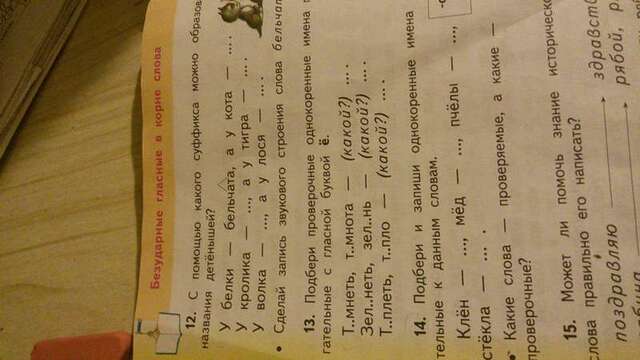 Безударные гласные в корне слова
12. С помощью какого суффикса можно образов
названия детёнышей?
У белки — бельчата, а у кота — ... .
У кролика — ..., а у тигра — ... .
У волка — ..., а у лося — ... .
• Сделай запись звукового строения слова бельчат
13. Подбери проверочные однокоренные имена п
гательные с гласной буквой ё.
Т..мнеть, т..мнота — (какой?) ... .
Зел..неть, зел..нь — (какой?) ... .
Т..плеть, т..пло — (какой?) ... .
14. Подбери и запиши однокоренные имена
тельные к данным словам.
Клён — ..., мёд — ..., пчёлы — ...,
стёкла — ... .
• Какие слова — проверяемые, а какие —
проверочные?
15. Может ли помочь знание историческо
слова правильно его написать?
поздравляю здравств
рябой, р